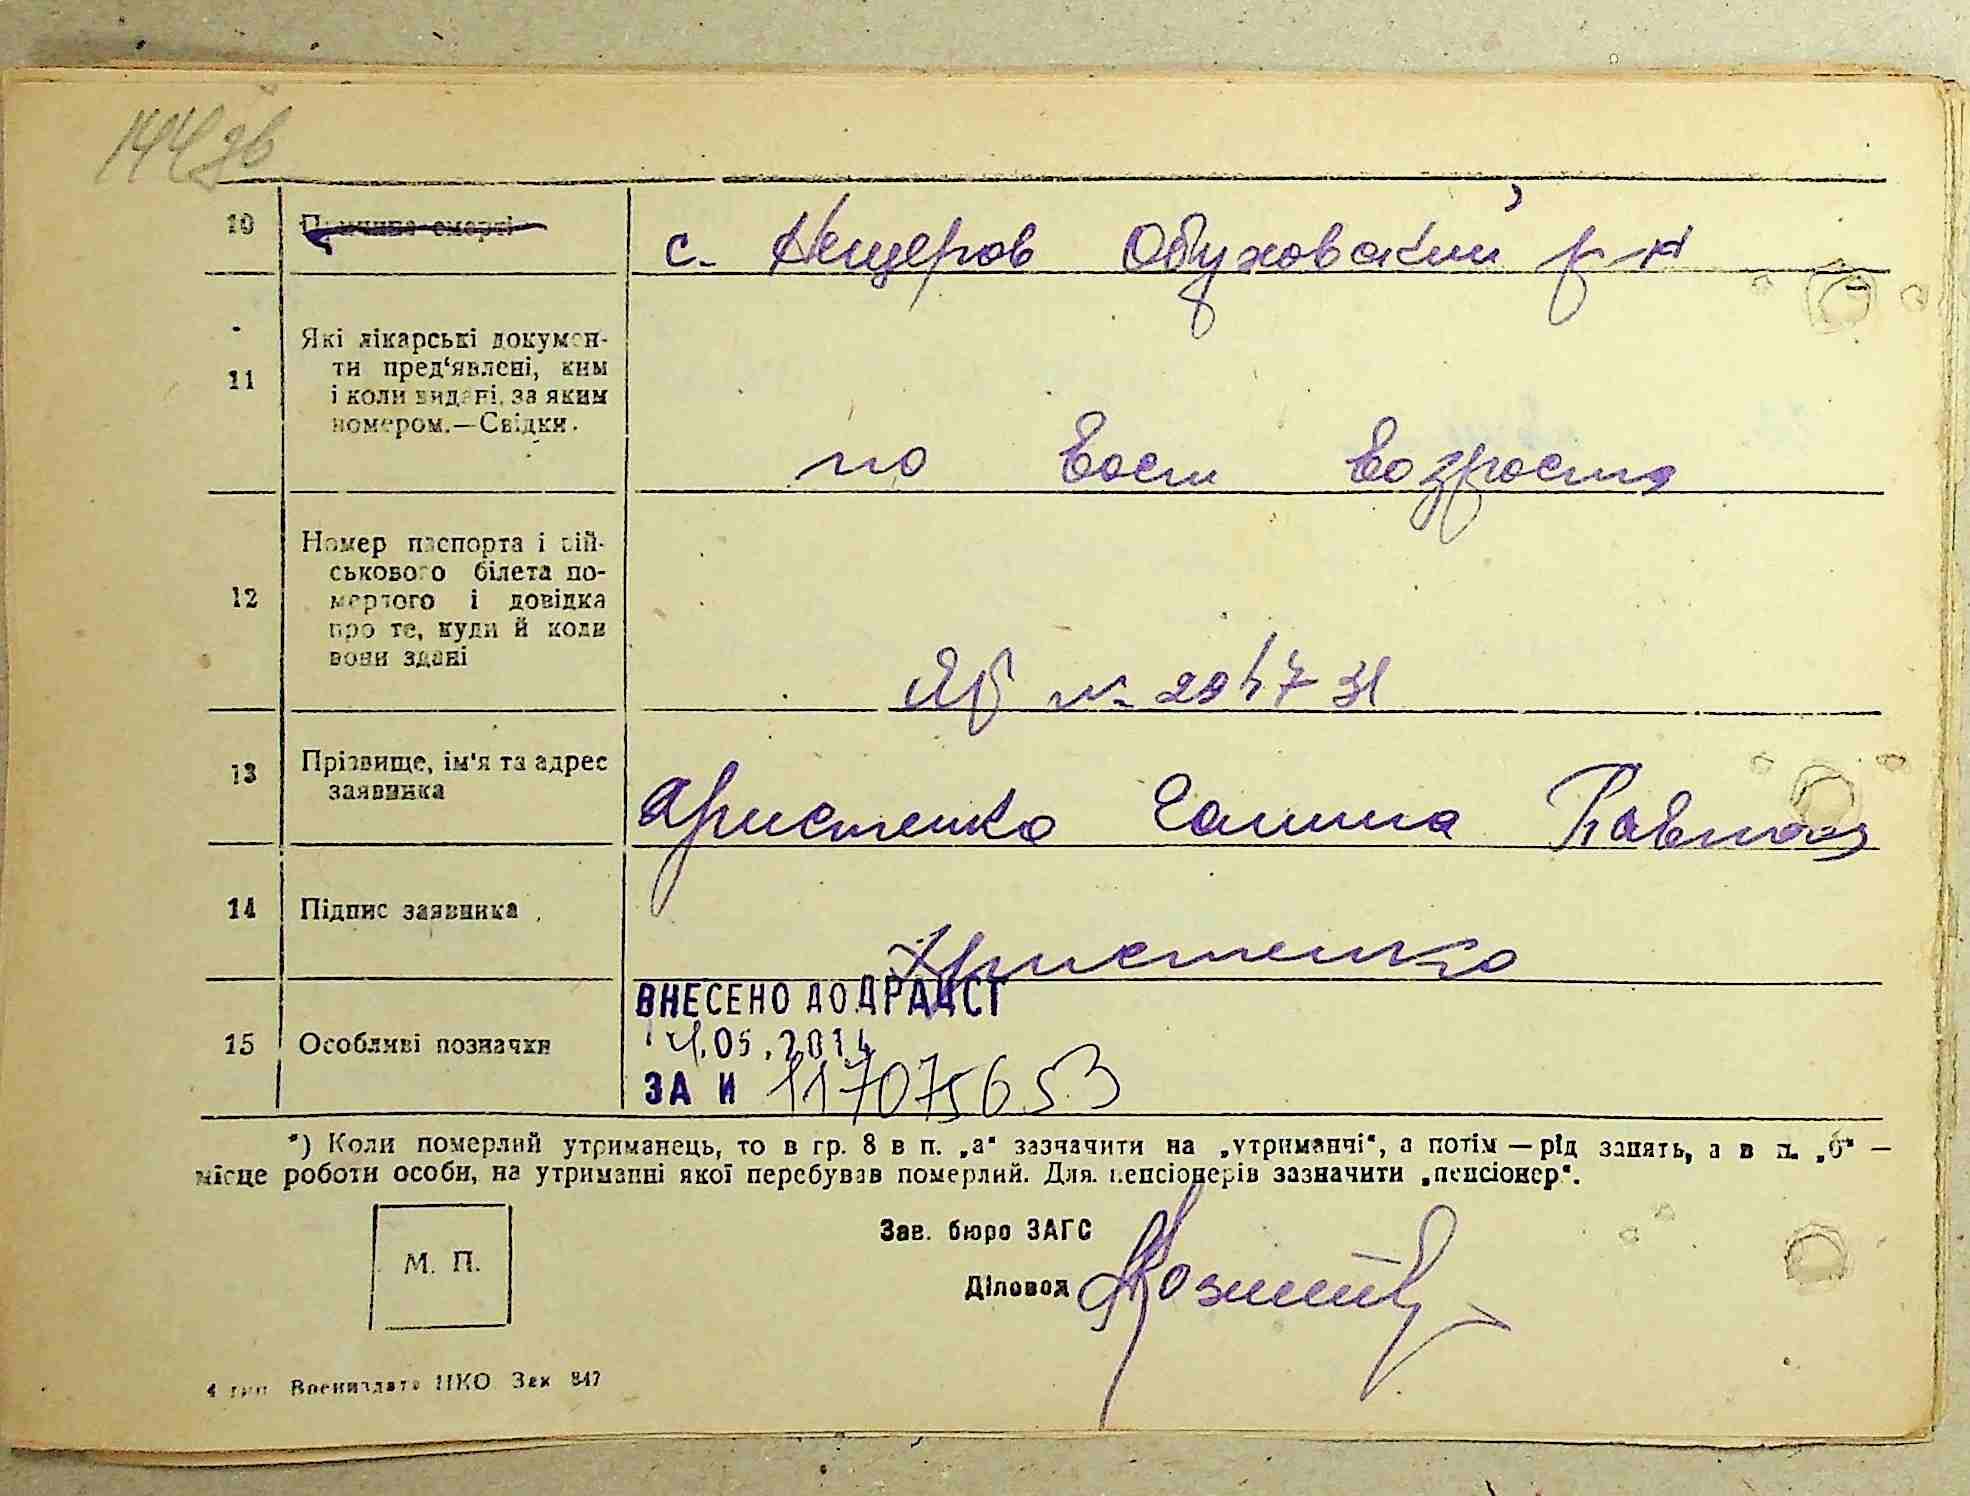 144 зв
10 Причина смерті
с. Нещеров Обуховский р-н
11 Які лікарські докумен-
ти пред‘явлені, ким
і коли видані, за яким
номером.—Свідки.
по восп возраста
12 Номер паспорта і вій-
ськового білета по-
мерлого і довідка
про те, куди й коли
вони здані
13 Прізвище, ім'я та адрес
заявника
Аристенко Галина Павловна
14 Підпис заявника
Аристенко
15 Особливі позначки
ВНЕСЕНО ДО ДРАЦСГ
.05.201
ЗА И 117075653
*) Коли померлий утриманець, то в гр. 8 в п. „а“ зазначити на „утриманчі“, а потім — рід занять, а в п. „б“ —
місце роботи особи, на утриманні якої перебував померлий. Для пенсіонерів зазначити „пенсіонер“.
Зав. бюро ЗАГС
М. П.
Діловод
4 тип Воениздата НКО Зак 847